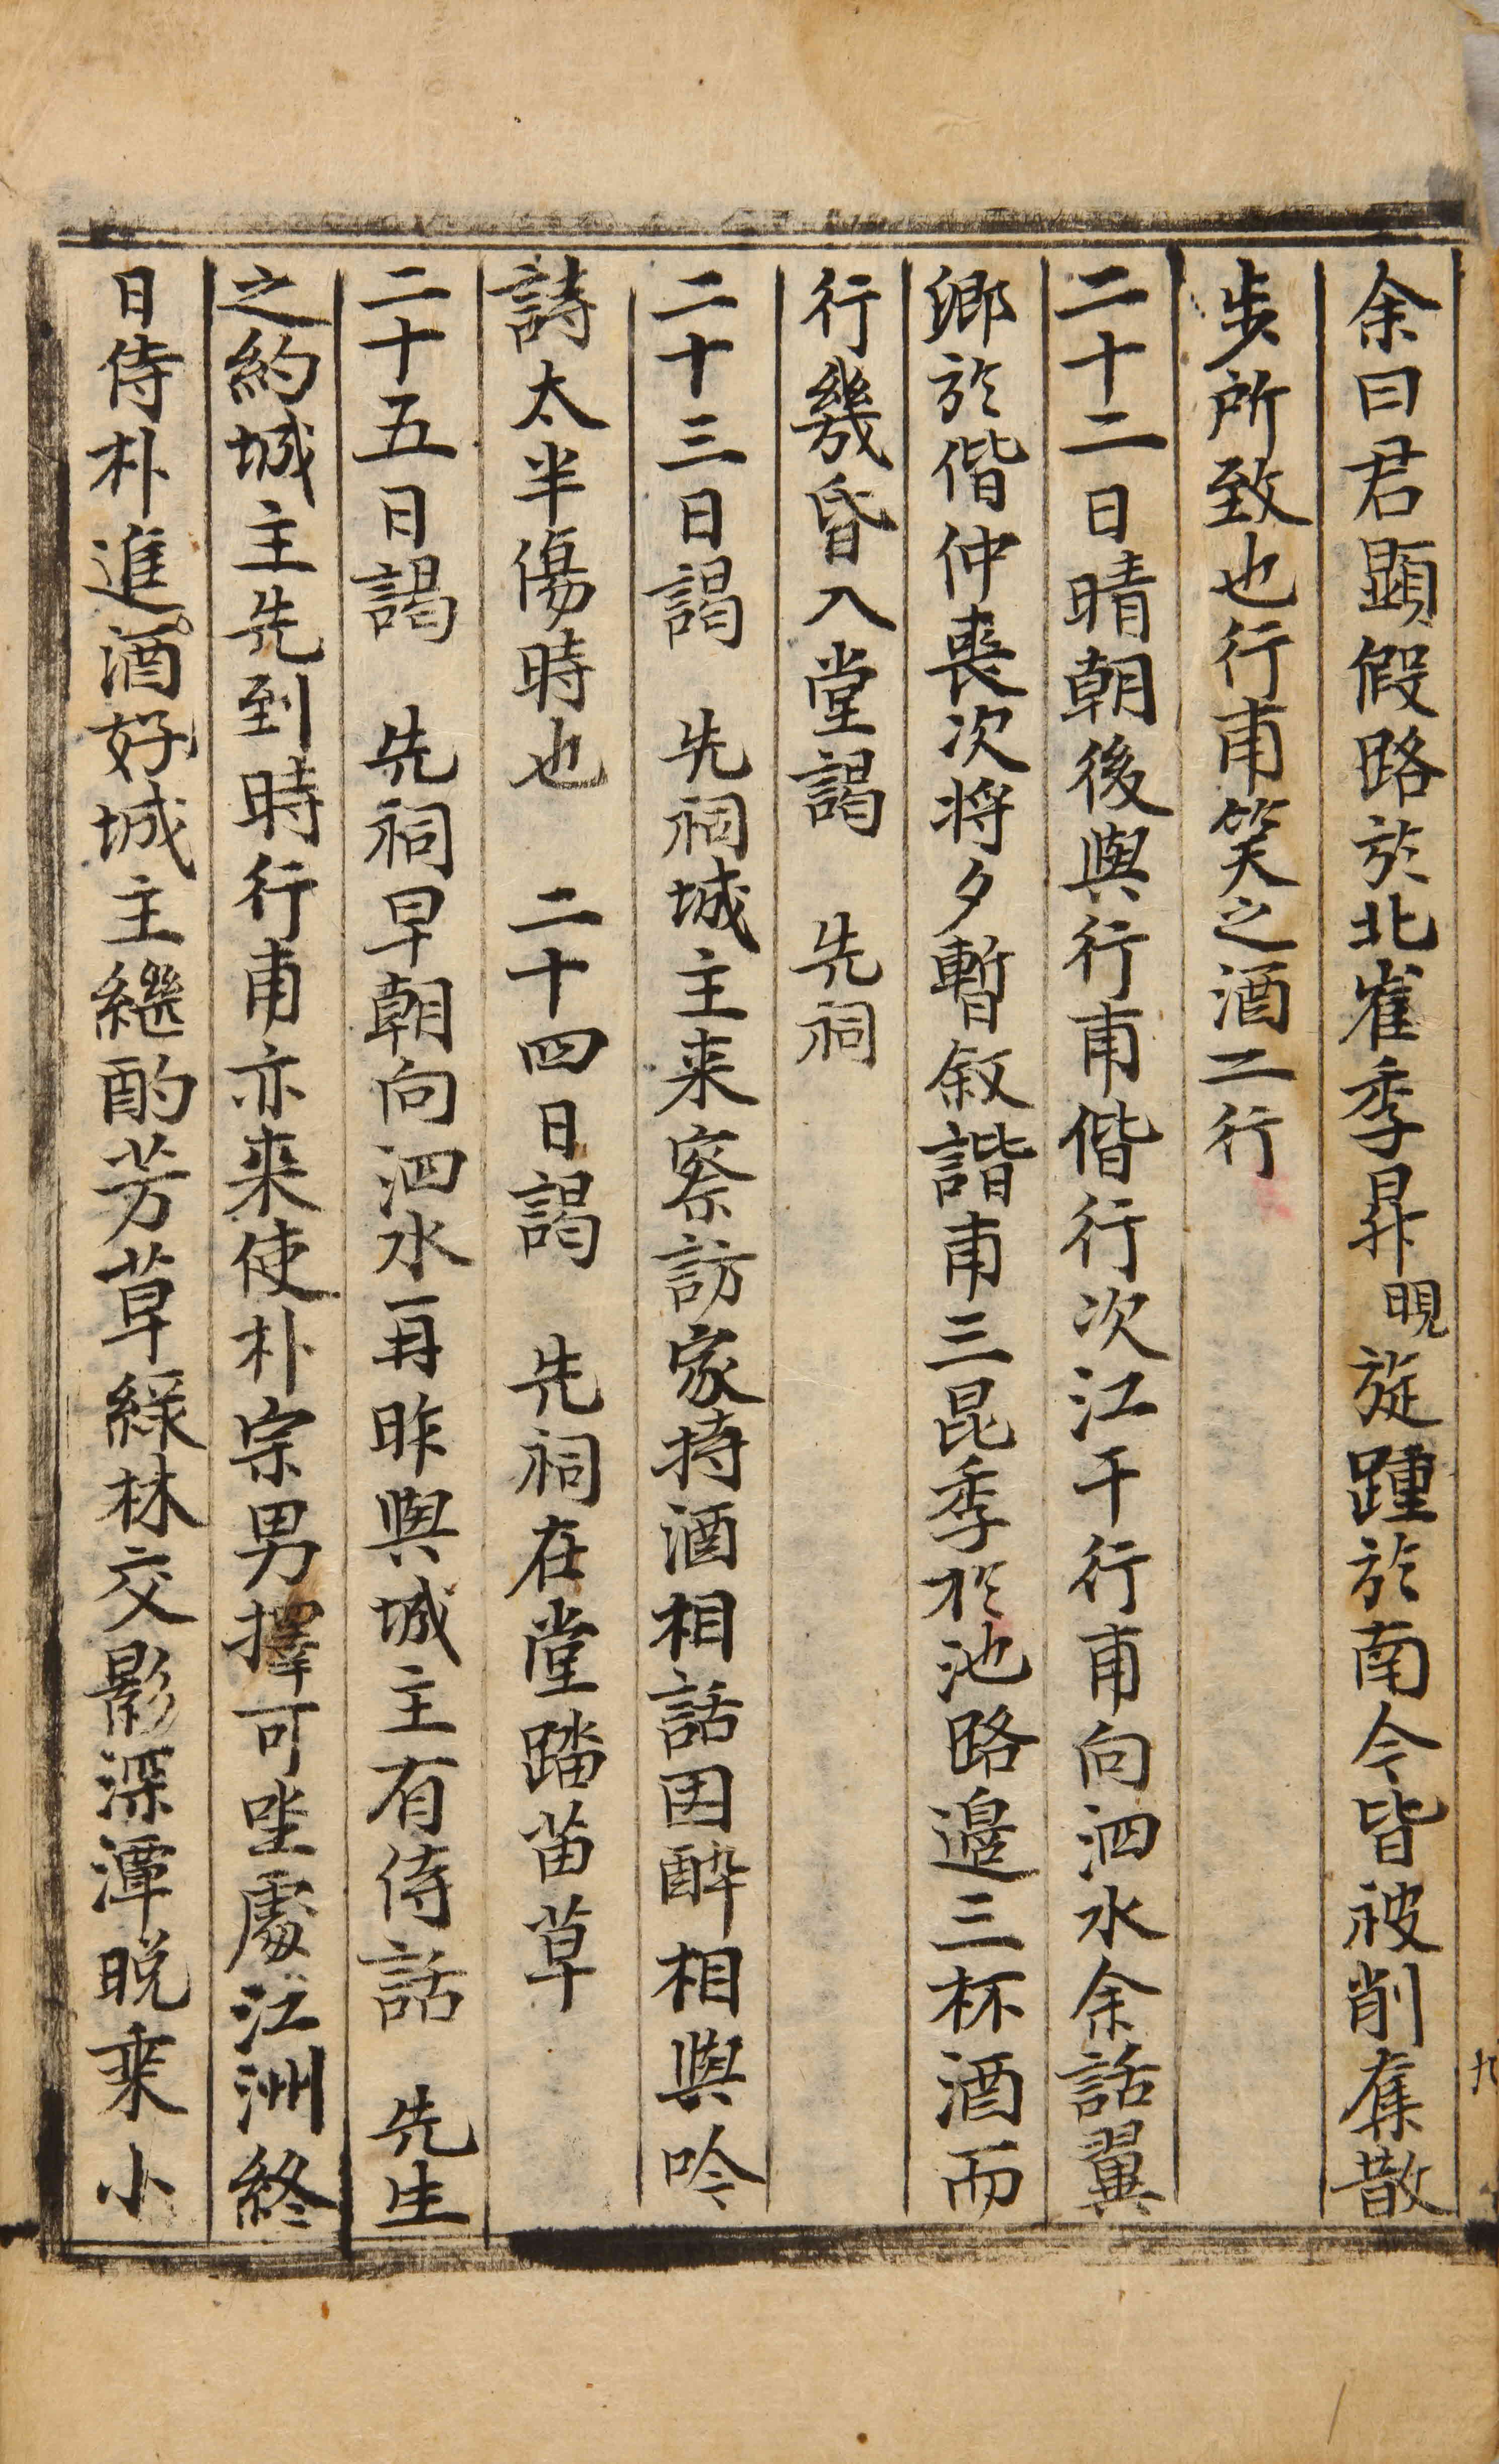 余曰君顯假路於北崔季昇晛旋踵於南今皆被削奪散
步所致也行甫笑之酒二行
二十二日晴朝後與行甫偕行次江干行甫向泗水余話翼
鄉於偕仲喪次將夕暫叙諧甫三昆季於池路邊三杯酒而
行幾昏入堂謁　先祠
二十三日謁　先祠城主来察訪家持酒相話因醉相與吟
詩太半傷時也　二十四日謁　先祠在堂踏苗草
二十五日謁　先祠早朝向泗水再昨與城主有侍話　先生
之約城主先到時行甫亦来使朴宗男擇可坐處江洲終
日侍朴進酒好城主繼酌芳草綠林交影深潭晚乘小
九